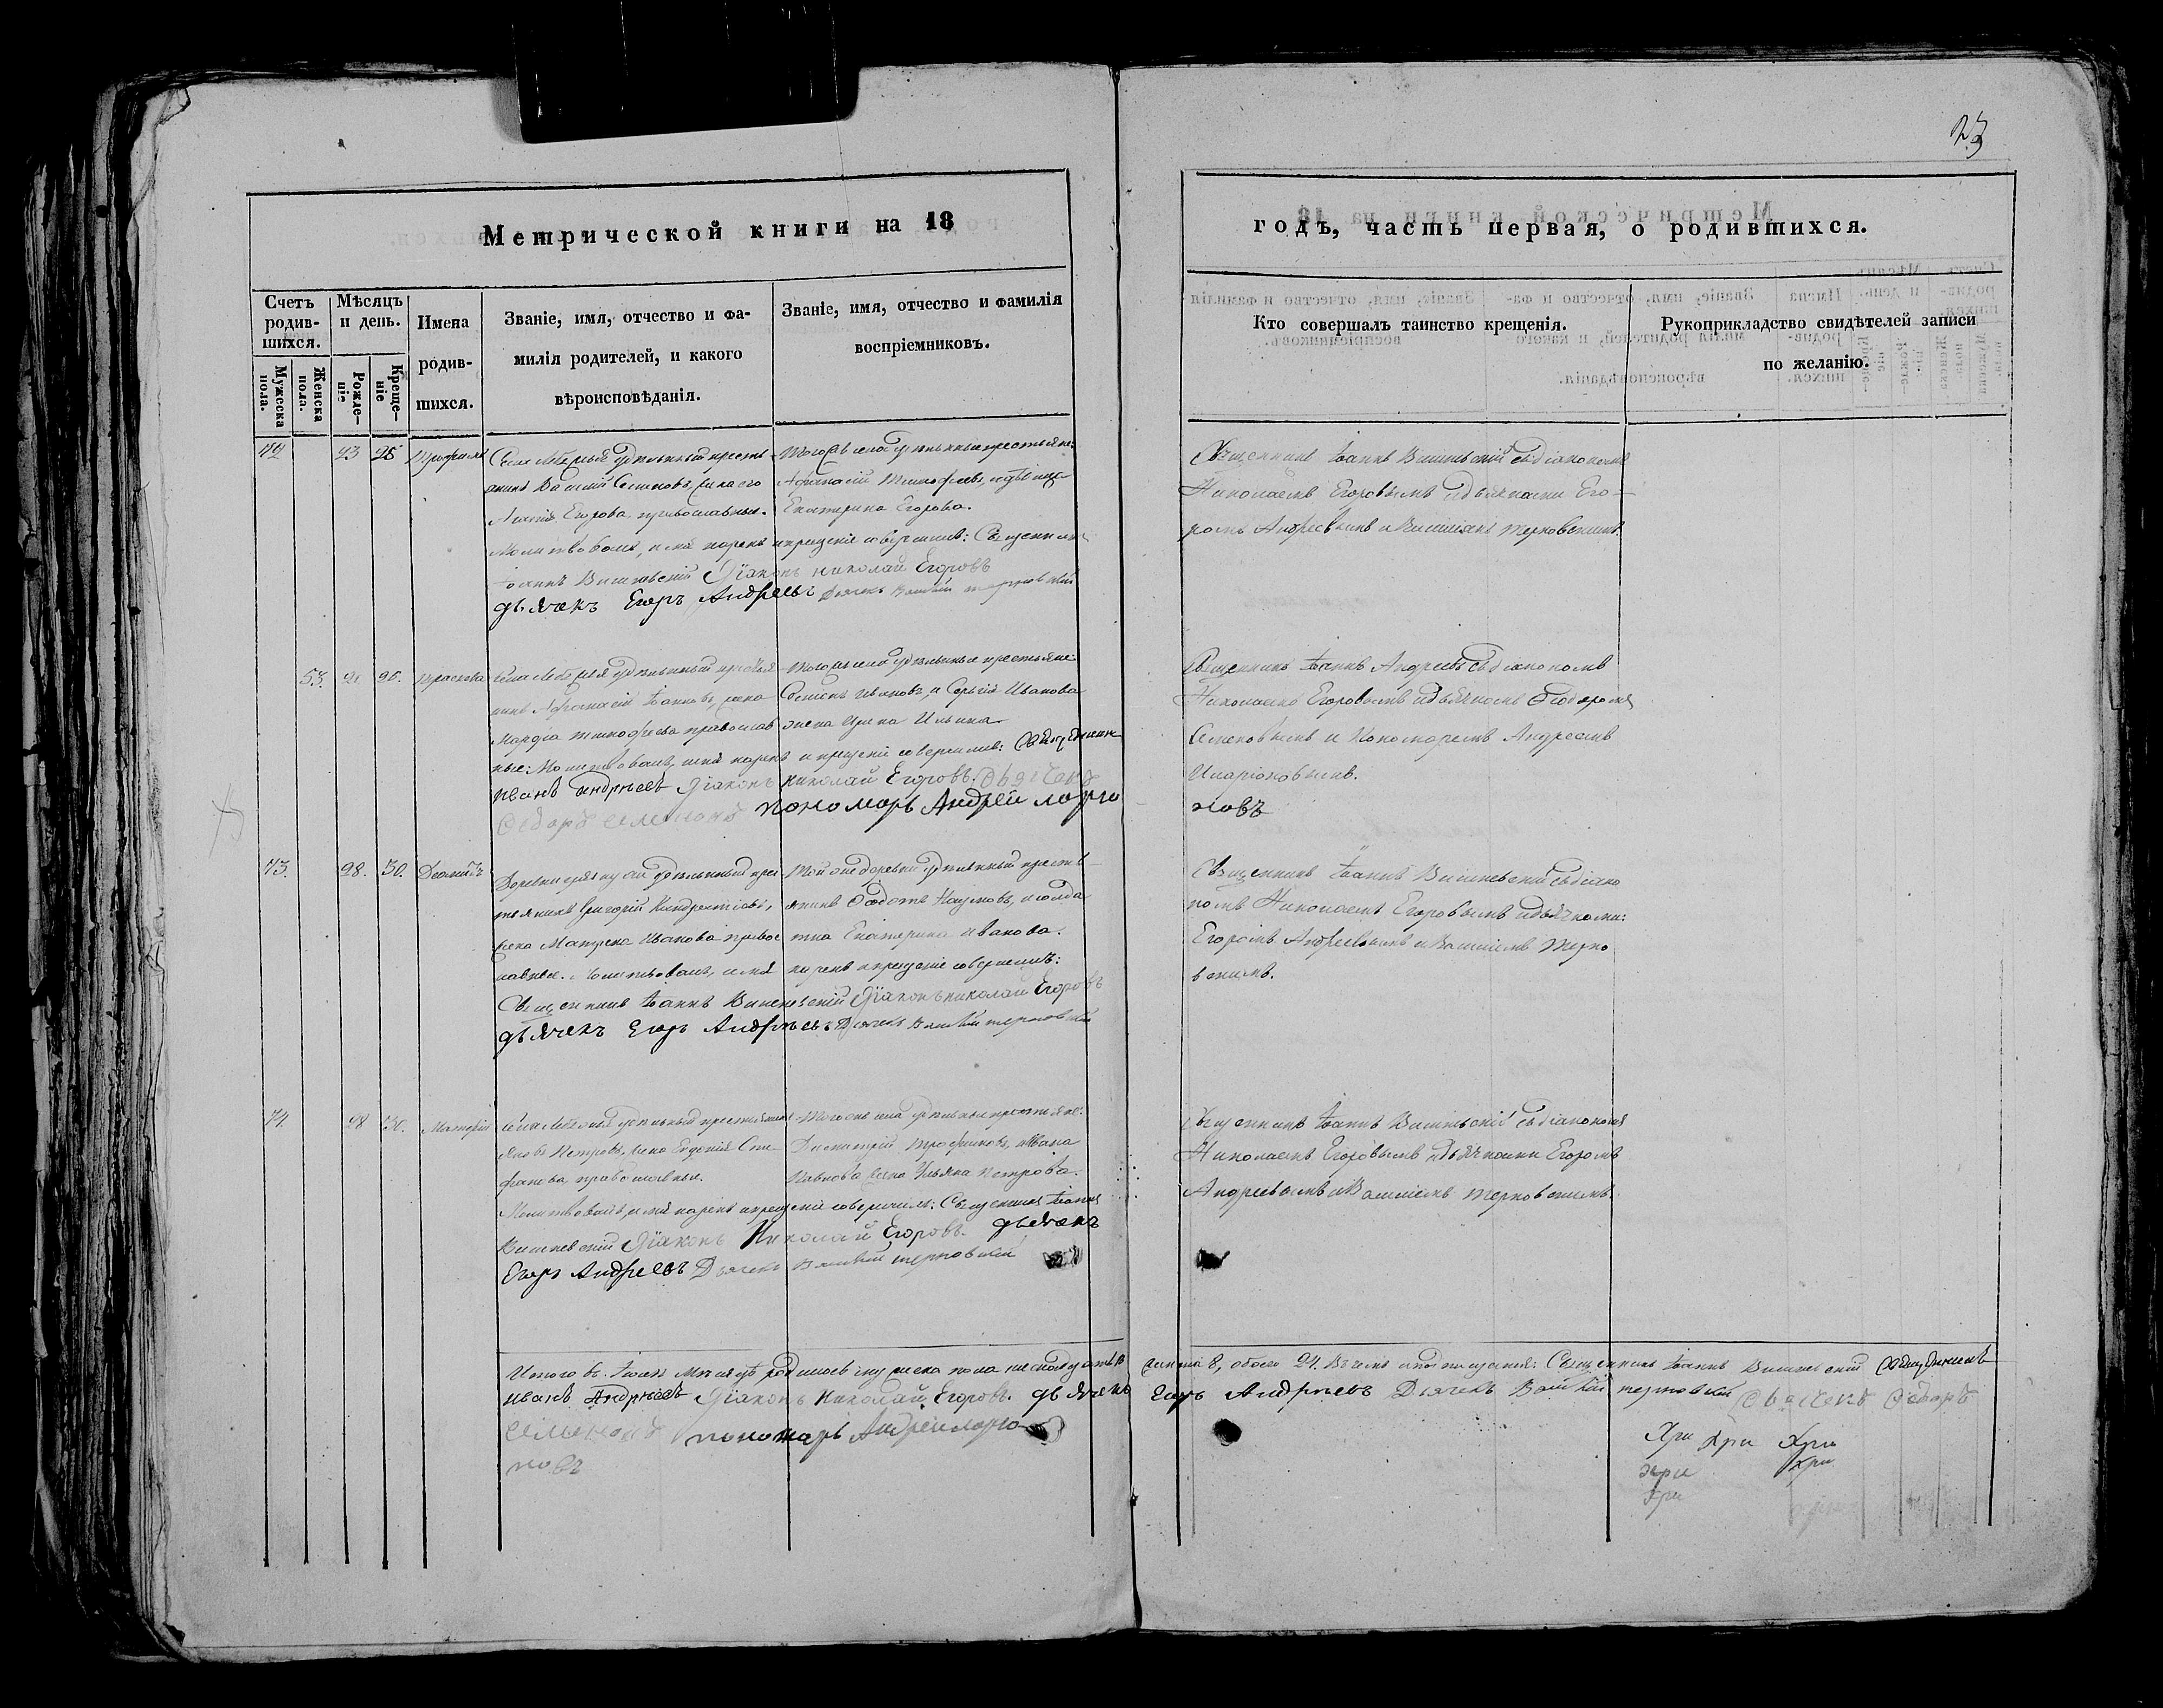 23
Метрической книги на 18
годъ, часть первая, о родившихся.
Счетъ родив-
шихся.
Мужеска пола.
Женска пола.
Мѣсяцъ и день.
Рожде-
ніе
Креще-
ніе
Имена
родив-
шихся.
Званіе, имя, отчество и фа-
милія родителей, и какого
вѣроисповѣданія.
Званіе, имя, отчество и фамилія
воспріемниковъ.
Кто совершалъ таинство крещенія.
Рукоприкладство свидѣтелей записи
по желанію.
72 23 25 Трофимъ
Села удѣльный кресть-
янинъ Василій Семеновъ, жена его
Егорова, православные.
Того села удѣльные крестьяне:
Афанасій Тимофеевъ, и дѣвица
Екатерина Егорова.
Молитвовалъ, имя нарекъ и крещеніе совершилъ: Священникъ
Іоаннъ Вишневскій Діаконъ Николай Егоровъ
дьячекъ Егоръ Андреевъ Дьячекъ Василій Терновскій
Священникъ Іоаннъ Вишневскій съ діакономъ
Николаемъ Егоровымъ и дьячками Его-
ромъ Андреевымъ и Василіемъ Терновскимъ.
53. 26. Праскева
Села удѣльный крестья-
нинъ Афанасій Іоанновъ, жена
Марфа Тимофеева православ
ные: Молитвовалъ, имя нарекъ и крещеніе совершилъ: Священникъ
Иванъ Андреевъ Діаконъ Николай Егоровъ. Дьячекъ
Ѳедоръ Семеновъ пономарь Андрей Ларио
новъ
Того села удѣльные крестьяне:
Семенъ Ивановъ, и Сергѣя Иванова
жена Ирина Ильина
Священникъ Іоаннъ Андреевъ съ діакономъ
Николаемъ Егоровымъ и дьячкомъ Ѳеодоромъ
Семеновымъ и Пономаремъ Андреемъ
Иларіоновымъ.
73. 28. 30. Деомидъ
Деревни удѣльный крес
тьянинъ Григорій
жена Матрена Иванова право
славные. Молитвовалъ, имя нарекъ и крещеніе совершилъ:
Священникъ Іоаннъ Вишневскій Діаконъ Николай Егоровъ
дьячекъ Егоръ Андреевъ Дьячекъ Василій Терновскій
Той же деревни удѣльный кресть
янинъ Ѳедотъ Наумовъ, и солда
тка Екатерина Иванова.
Священникъ Іоаннъ Вишневскій съ діако
номъ Николаемъ Егоровымъ и дьячками:
Егоромъ Андреевымъ и Василіемъ Терно
вскимъ.
74. 28 30. Матфій
Села удѣльный крестьянинъ
Яковъ Петровъ, жена Евдокія Сте-
фанова православные.
Того же села удѣльные крестьяне:
Димитрій Трофимовъ, и Ивана
Павлова жена Ульяна Петрова.
Молитвовалъ, имя нарекъ и крещеніе совершилъ: Священникъ Іоаннъ
Вишневскій Діаконъ Николай Егоровъ. дьячекъ
Егоръ Андреевъ Дьячекъ Василій Терновскій
Священникъ Іоаннъ Вишневскій съ діакономъ
Николаемъ Егоровымъ и дьячками Егоромъ
Андреевымъ и Василіемъ Терновскимъ.
Итого въ Іюлѣ мѣсяцѣ родилось мужеска пола женска 8, обоего 24. Въ чемъ и подписуемся: Священникъ Іоаннъ Вишневскій Священникъ
Иванъ Андреевъ Діаконъ Николай Егоровъ. дьячекъ Егоръ Андреевъ Дьячекъ Василій Терновскій Дьячекъ Ѳедоръ
Семеновъ пономарь Андрей Ларио
новъ
Хри Хри Хри
Хри Хри
Хри